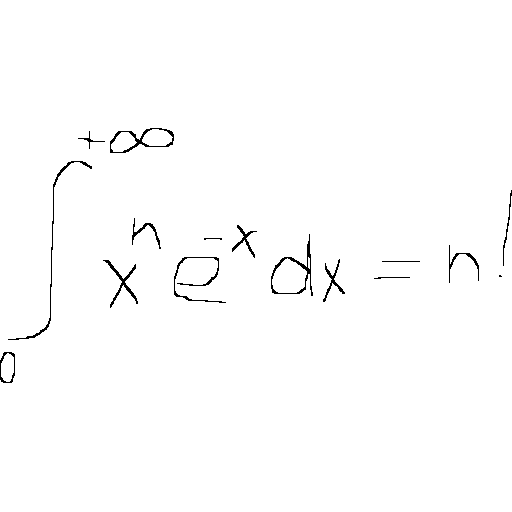 \int_{0}^{+\infty} x^{n} e^{-x} dx = n!